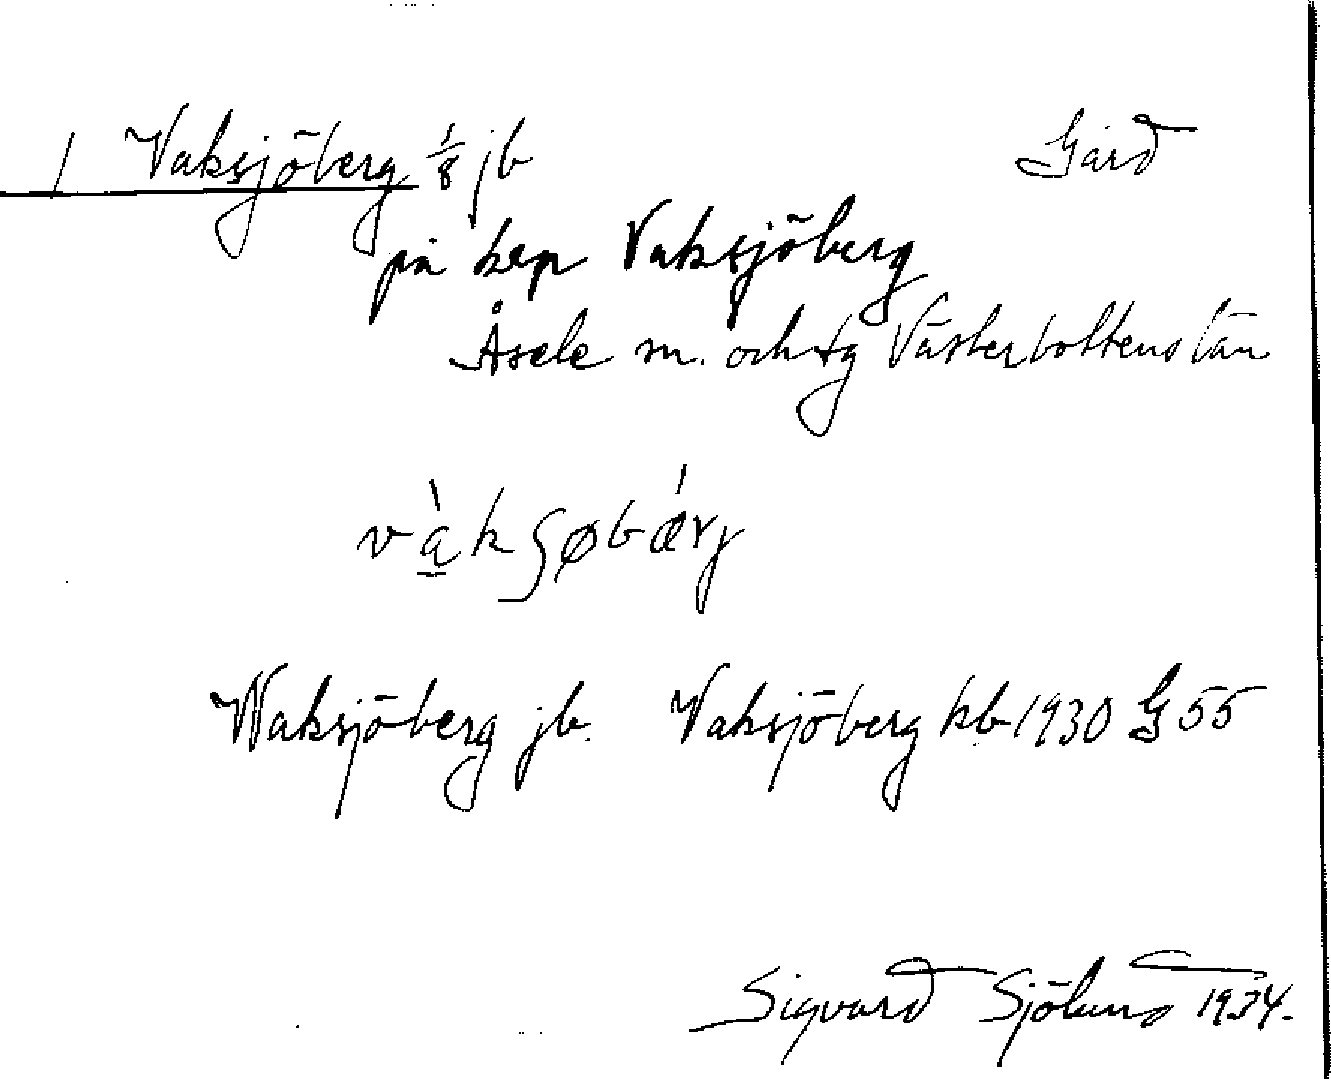 1 Vaksjöberg 1/8 jb Gård
på hep Vaksjöberg
Åsele sn. och tg Västerbottens län
vàkʂøbǽrj
Waksjöberg jb. Vaksjöberg kb 1930 G 55
Sigvard Sjölund 1934.